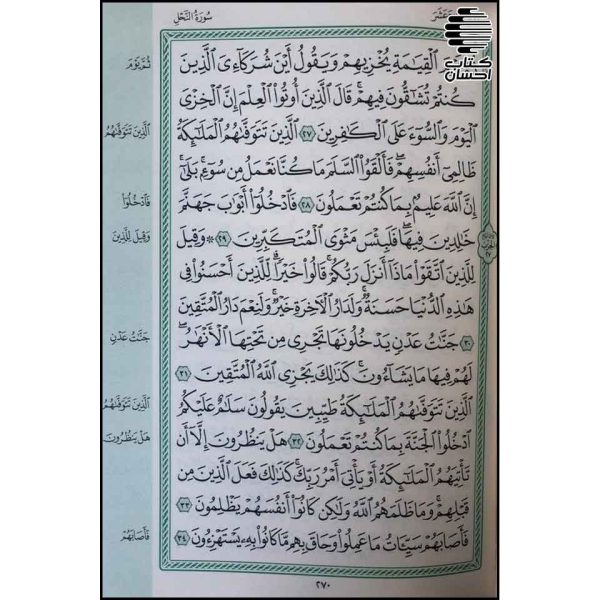 سُورَةُ النَّحْلِ
عَشَرَ
کتاب
احسان
الْقِيَٰمَةِ يُخْزِيهِمْ وَيَقُولُ أَيْنَ شُرَكَآءِىَ الَّذِينَ
كُنتُمْ تُشَٰٓقُّونَ فِيهِمْ ۚ قَالَ الَّذِينَ أُوتُوا۟ الْعِلْمَ إِنَّ الْخِزْىَ
الْيَوْمَ وَالسُّوٓءَ عَلَى الْكَٰفِرِينَ ٢٧ الَّذِينَ تَتَوَفَّىٰهُمُ الْمَلَٰٓئِكَةُ
ظَالِمِىٓ أَنفُسِهِمْ ۖ فَأَلْقَوُا۟ السَّلَمَ مَا كُنَّا نَعْمَلُ مِن سُوٓءٍ ۚ بَلَىٰٓ
إِنَّ اللَّهَ عَلِيمٌۢ بِمَا كُنتُمْ تَعْمَلُونَ ٢٨ فَادْخُلُوٓا۟ أَبْوَٰبَ جَهَنَّمَ
خَٰلِدِينَ فِيهَا ۖ فَلَبِئْسَ مَثْوَى الْمُتَكَبِّرِينَ ٢٩ ۞ وَقِيلَ
لِلَّذِينَ اتَّقَوْا۟ مَاذَآ أَنزَلَ رَبُّكُمْ ۚ قَالُوا۟ خَيْرًا ۗ لِّلَّذِينَ أَحْسَنُوا۟ فِى
هَٰذِهِ الدُّنْيَا حَسَنَةٌ ۚ وَلَدَارُ الْءَاخِرَةِ خَيْرٌ ۚ وَلَنِعْمَ دَارُ الْمُتَّقِينَ
٣٠ جَنَّٰتُ عَدْنٍ يَدْخُلُونَهَا تَجْرِى مِن تَحْتِهَا الْأَنْهَٰرُ ۖ
لَهُمْ فِيهَا مَا يَشَآءُونَ ۚ كَذَٰلِكَ يَجْزِى اللَّهُ الْمُتَّقِينَ ٣١
الَّذِينَ تَتَوَفَّىٰهُمُ الْمَلَٰٓئِكَةُ طَيِّبِينَ ۙ يَقُولُونَ سَلَٰمٌ عَلَيْكُمُ
ادْخُلُوا۟ الْجَنَّةَ بِمَا كُنتُمْ تَعْمَلُونَ ٣٢ هَلْ يَنظُرُونَ إِلَّآ أَن
تَأْتِيَهُمُ الْمَلَٰٓئِكَةُ أَوْ يَأْتِىَ أَمْرُ رَبِّكَ ۚ كَذَٰلِكَ فَعَلَ الَّذِينَ مِن
قَبْلِهِمْ ۚ وَمَا ظَلَمَهُمُ اللَّهُ وَلَٰكِن كَانُوٓا۟ أَنفُسَهُمْ يَظْلِمُونَ ٣٣
فَأَصَابَهُمْ سَيِّـَٔاتُ مَا عَمِلُوا۟ وَحَاقَ بِهِم مَّا كَانُوا۟ بِهِۦ يَسْتَهْزِءُونَ ٣٤
٢٧٠
ثُمَّ يَوْمَ
الَّذِينَ تَتَوَفَّىٰهُمُ
فَادْخُلُوٓا۟
وَقِيلَ لِلَّذِينَ
جَنَّٰتُ عَدْنٍ
الَّذِينَ تَتَوَفَّىٰهُمُ
هَلْ يَنظُرُونَ
فَأَصَابَهُمْ